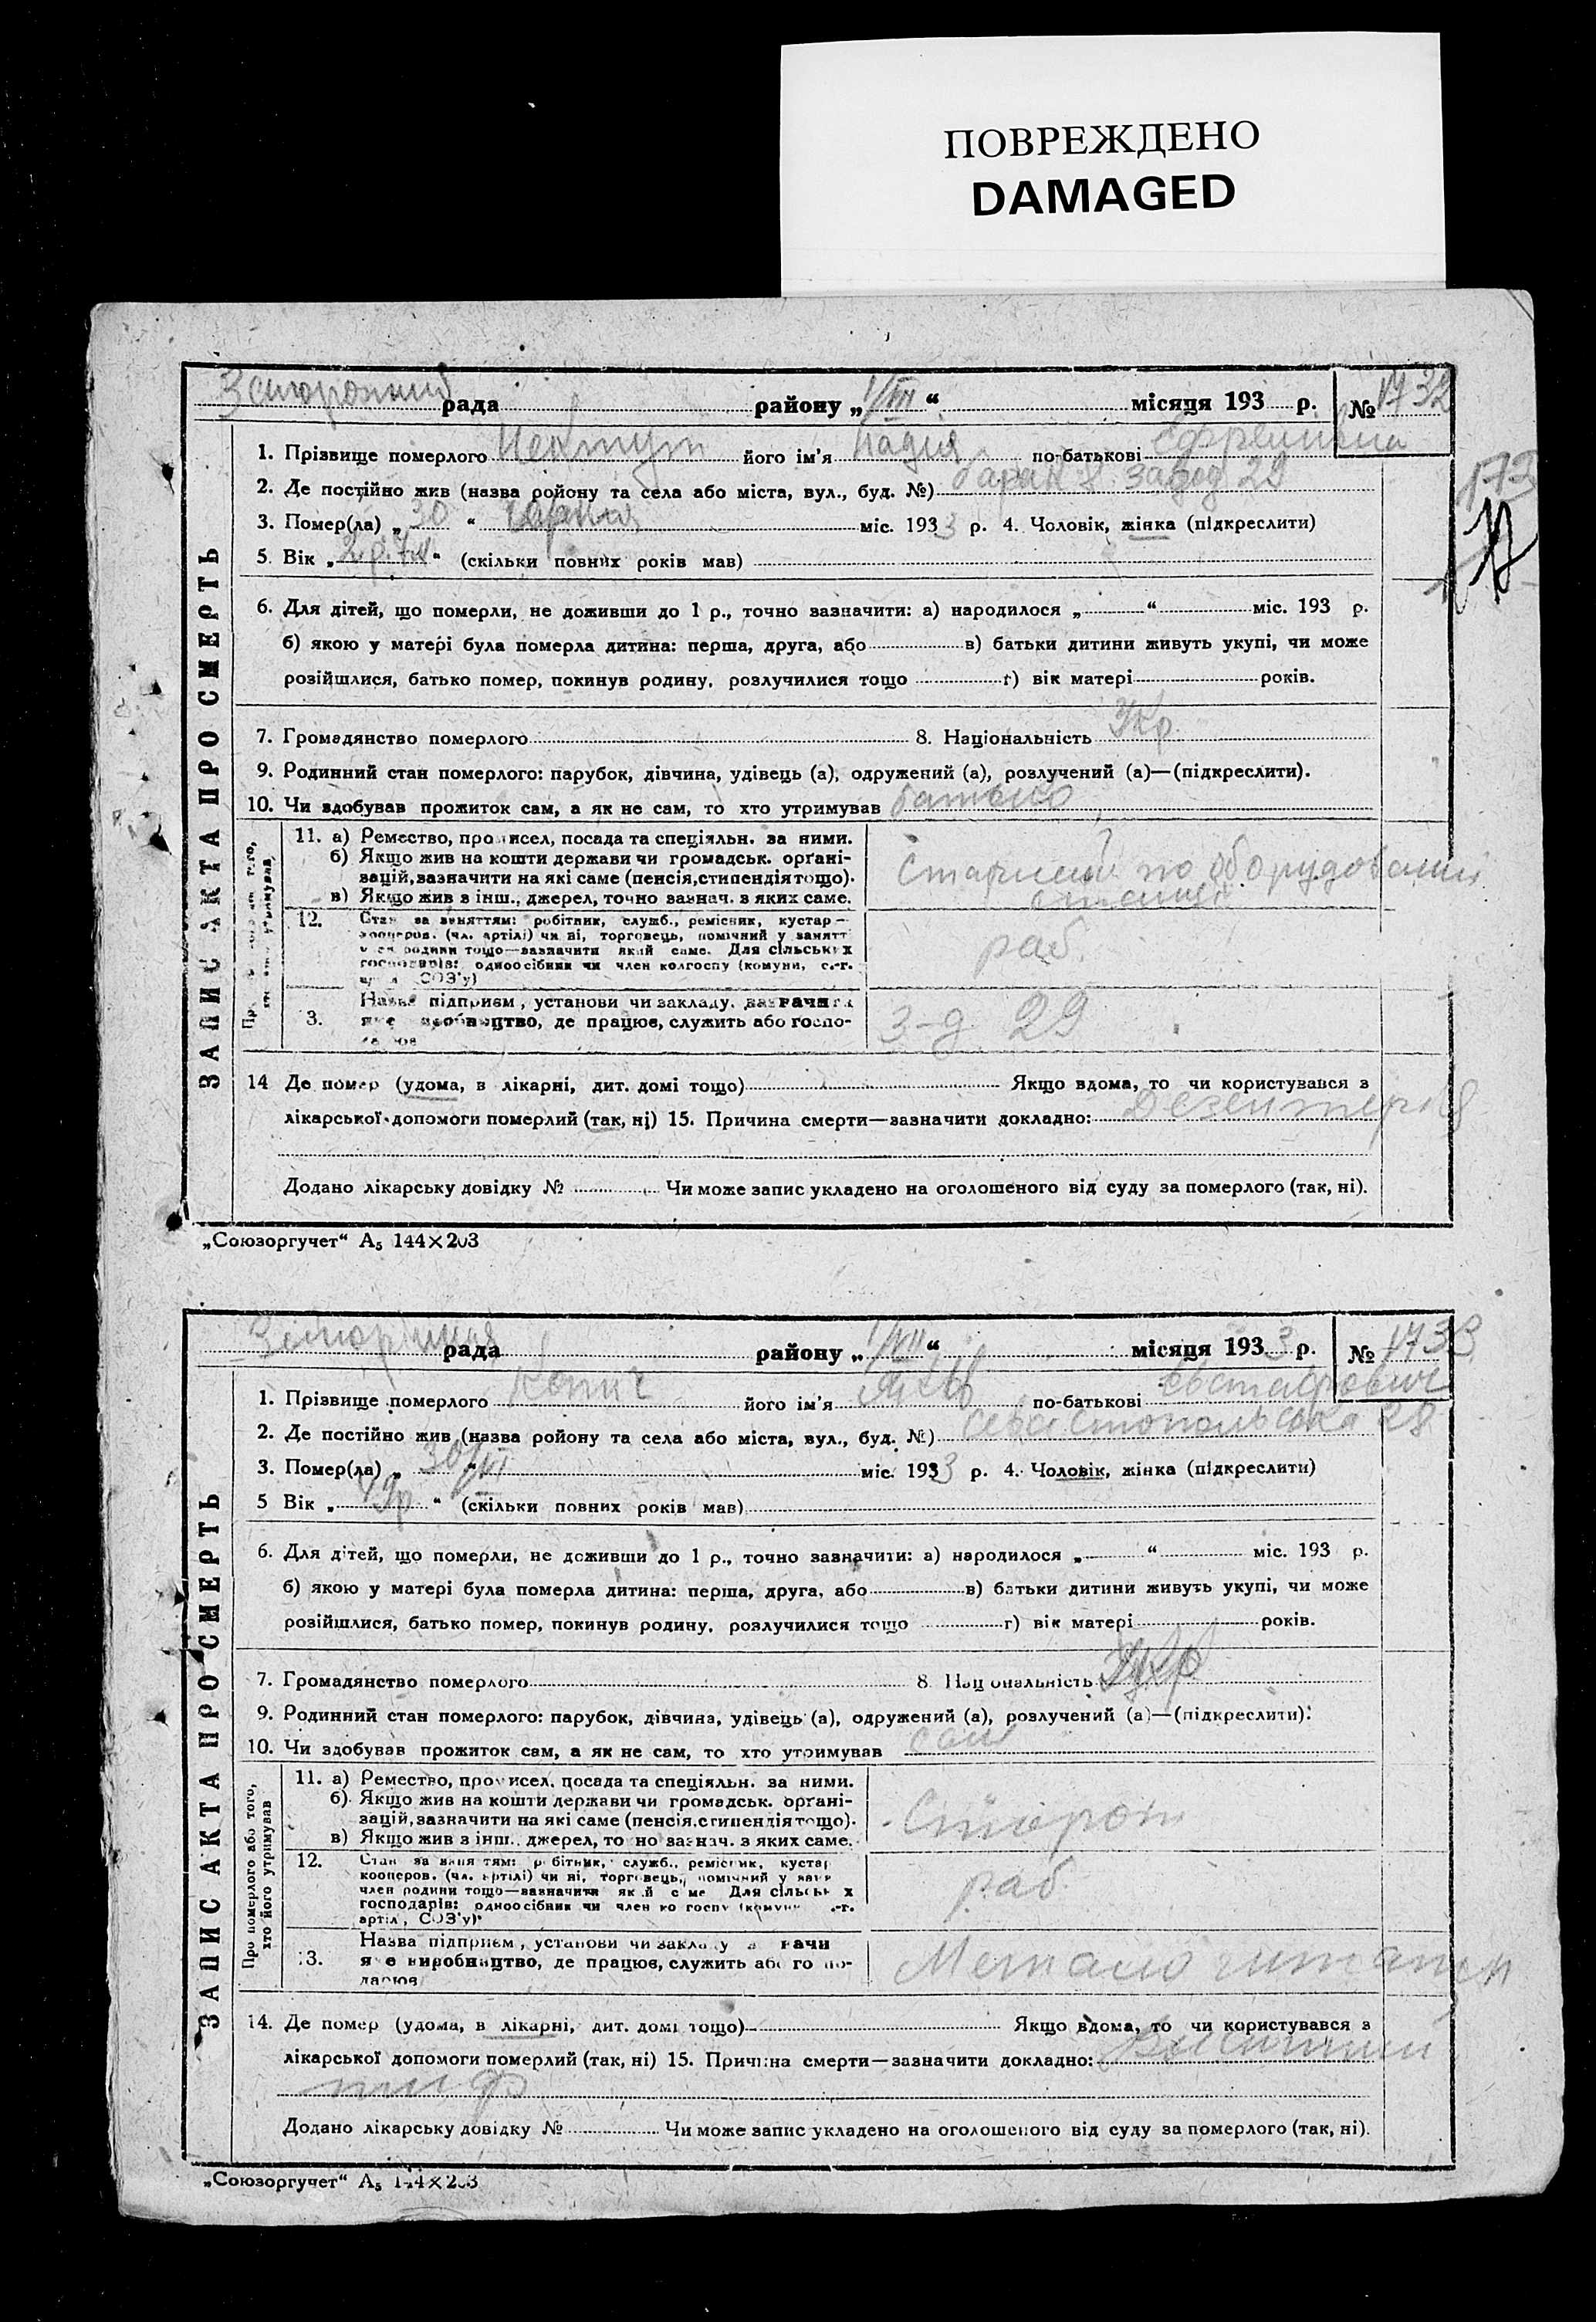 ПОВРЕЖДЕНО
DAMAGED
рада району „ 1/VII “ місяця 193 р. № 1732
1. Прізвище померлого його ім'я Надія по-батькові
2. Де постійно жив (назва району та села або міста, вул., буд. №) барак завод 29
3. Помер(ла) „ 30 “ червня міс. 1933 р. 4. Чоловік, жінка (підкреслити)
173
5. Вік „ 2 р. 7 м “ (скільки повних років мав)
6. Для дітей, що померли, не доживши до 1 р., точно зазначити: а) народилося „ “ міс. 193 р.
б) якою у матері була померла дитина: перша, друга, або в) батьки дитини живуть укупі, чи може
розійшлися, батько помер, покинув родину, розлучилися тощо г) вік матері років.
7. Громадянство померлого 8. Національність Укр.
9. Родинний стан померлого: парубок, дівчина, удівець (а), одружений (а), розлучений (а)—(підкреслити).
10. Чи здобував прожиток сам, а як не сам, то хто утримував батько
11. а) Ремество, промисел, посада та спеціяльн. за ними.
б) Якщо жив на кошти держави чи громадськ. орґані-
зацій, зазначити на які саме (пенсія, стипендія тощо).
в) Якщо жив з інш., джерел, точно зазнач. з яких саме.
по оборудованию
12. Стан за заняттям: робітник, служб., ремісник, кустар—
кооперов. (чл. артілі) чи ні, торговець, помічний у занятті
член родини тощо—зазначити який саме. Для сільських
господарів: одноосібник чи член колгоспу (комуни, с.-г.
СОЗ'у)
раб.
3. Назва підприєм., установи чи закладу, зазначити
яке виробництво, де працює, служить або госпо-
з-д 29
14 Де помер (удома, в лікарні, дит. домі тощо) Якщо вдома, то чи користувався з
лікарської допомоги померлий (так, ні) 15. Причина смерти—зазначити докладно: Дезентерія
Додано лікарську довідку № Чи може запис укладено на оголошеного від суду за померлого (так, ні).
ЗАПИС АКТА ПРО СМЕРТЬ
„Союзоргучет“ А5 144×203
рада району „ 1/VII “ місяця 1933 р. № 1733
1. Прізвище померлого його ім'я Яків по-батькові Євстафович
2. Де постійно жив (назва району та села або міста, вул., буд. №) Севастопольська 28
3. Помер(ла) „ 30/VI міс. 1933 р. 4. Чоловік, жінка (підкреслити)
5 Вік „ “ (скільки повних років мав)
6. Для дітей, що померли, не доживши до 1 р., точно зазначити: а) народилося „ “ міс. 193 р.
б) якою у матері була померла дитина: перша, друга, або в) батьки дитини живуть укупі, чи може
розійшлися, батько помер, покинув родину, розлучилися тощо г) вік матері років.
7. Громадянство померлого 8. Національність Укр
9. Родинний стан померлого: парубок, дівчина, удівець (а), одружений (а), розлучений (а)—(підкреслити).
10. Чи здобував прожиток сам, а як не сам, то хто утримував сам
Про померлого або того,
хто його утримував
11. а) Ремество, промисел, посада та спеціяльн. за ними.
б) Якщо жив на кошти держави чи громадськ. орґані-
зацій, зазначити на які саме (пенсія, стипендія тощо).
в) Якщо жив з інш., джерел, точно зазнач. з яких саме.
12. Стан за заняттям: робітник, служб., ремісник, кустар
кооперов. (чл. артілі) чи ні, торговець, помічний у занятт
член родини тощо—зазначити який саме Для сільських
господарів: одноосібник чи член колгоспу (комуни с.-г.
артіл, СОЗ'у)
раб.
3. Назва підприєм., установи чи закладу зазначи
яке виробництво, де працює, служить або госпо-
14. Де помер (удома, в лікарні, дит. домі тощо) Якщо вдома, то чи користувався з
лікарської допомоги померлий (так, ні) 15. Причина смерти—зазначити докладно:
тиф
Додано лікарську довідку № Чи може запис укладено на оголошеного від суду за померлого (так, ні).
ЗАПИС АКТА ПРО СМЕРТЬ
„Союзоргучет“ А5 144×203